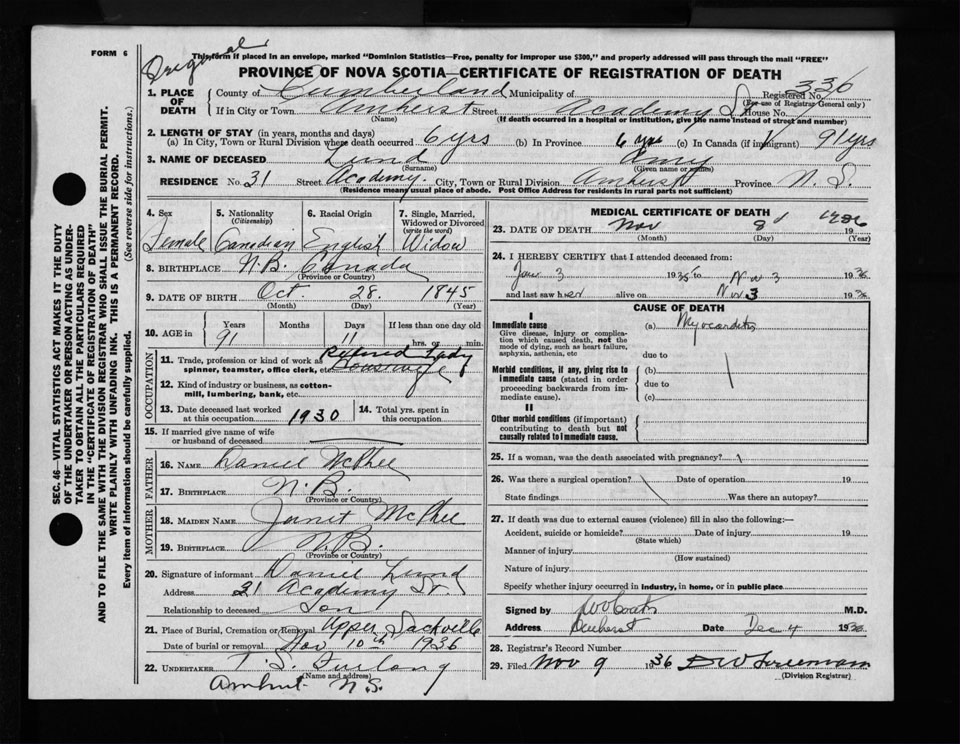 FORM 6
Original
This form if placed in an envelope, marked "Dominion Statistics—Free, penalty for improper use $300," and properly addressed will pass through the mail "FREE"
PROVINCE OF NOVA SCOTIA—CERTIFICATE OF REGISTRATION OF DEATH
1. PLACE OF DEATH County of Cumberland Municipality of Registered No. 336
(For use of Registrar General only)
If in City or Town Amherst Street Academy St House No.
(Name) (If death occurred in a hospital or institution, give the name instead of street and number)
2. LENGTH OF STAY (in years, months and days)
(a) In City, Town or Rural Division where death occurred 6 yrs (b) In Province 6 yrs (c) In Canada (if immigrant) 91 yrs
3. NAME OF DECEASED Lund Amy
(Surname) (Given name or names)
RESIDENCE No. 31 Street Academy. City, Town or Rural Division Amherst Province N. S.
(Residence means usual place of abode. Post Office Address for residents in rural parts not sufficient)
4. Sex Female
5. Nationality (Citizenship) Canadian
6. Racial Origin English
7. Single, Married, Widowed or Divorced (write the word) Widow
8. BIRTHPLACE N.B. Canada
(Province or Country)
9. DATE OF BIRTH Oct. 28. 1845
(Month) (Day) (Year)
10. AGE in Years 91 Months Days 11 If less than one day old hrs. or min.
OCCUPATION
11. Trade, profession or kind of work as spinner, teamster, office clerk, etc. Retired Lady
12. Kind of industry or business, as cotton-mill, lumbering, bank, etc.
13. Date deceased last worked at this occupation 1930
14. Total yrs. spent in this occupation
15. If married give name of wife or husband of deceased
FATHER
16. NAME Daniel McPhee
17. BIRTHPLACE N.B.
(Province or Country)
MOTHER
18. MAIDEN NAME Janet McPhee
19. BIRTHPLACE N.B.
(Province or Country)
20. Signature of informant Daniel Lund
Address Academy St.
Relationship to deceased Son
21. Place of Burial, Cremation or Removal Upper Sackville
Date of burial or removal Nov. 10th 1936
22. UNDERTAKER T. S. Furlong
(Name and address)
Amherst N.S.
MEDICAL CERTIFICATE OF DEATH
23. DATE OF DEATH Nov 8 1936 19
(Month) (Day) (Year)
24. I HEREBY CERTIFY that I attended deceased from:
Jan 3 1935 to Nov 3 1936
and last saw her alive on Nov. 3 1936
CAUSE OF DEATH
I
Immediate cause
Give disease, injury or complication which caused death, not the mode of dying, such as heart failure, asphyxia, asthenia, etc
(a) Myocarditis
due to
Morbid conditions, if any, giving rise to immediate cause (stated in order proceeding backwards from immediate cause).
(b)
due to
(c)
II
Other morbid conditions (if important) contributing to death but not causally related to immediate cause.
25. If a woman, was the death associated with pregnancy?
26. Was there a surgical operation? Date of operation 19
State findings Was there an autopsy?
27. If death was due to external causes (violence) fill in also the following:—
Accident, suicide or homicide? Date of injury 19
(State which)
Manner of injury
(How sustained)
Nature of injury
Specify whether injury occurred in industry, in home, or in public place
Signed by M.D.
Address Amherst Date Dec 4 1936
28. Registrar's Record Number
29. Filed Nov 9 1936 Freeman
(Division Registrar)
SEC. 46—VITAL STATISTICS ACT MAKES IT THE DUTY
OF THE UNDERTAKER OR PERSON ACTING AS UNDER-
TAKER TO OBTAIN ALL THE PARTICULARS REQUIRED
IN THE "CERTIFICATE OF REGISTRATION OF DEATH"
AND TO FILE THE SAME WITH THE DIVISION REGISTRAR WHO SHALL ISSUE THE BURIAL PERMIT.
WRITE PLAINLY WITH UNFADING INK. THIS IS A PERMANENT RECORD.
Every item of information should be carefully supplied. (See reverse side for instructions.)